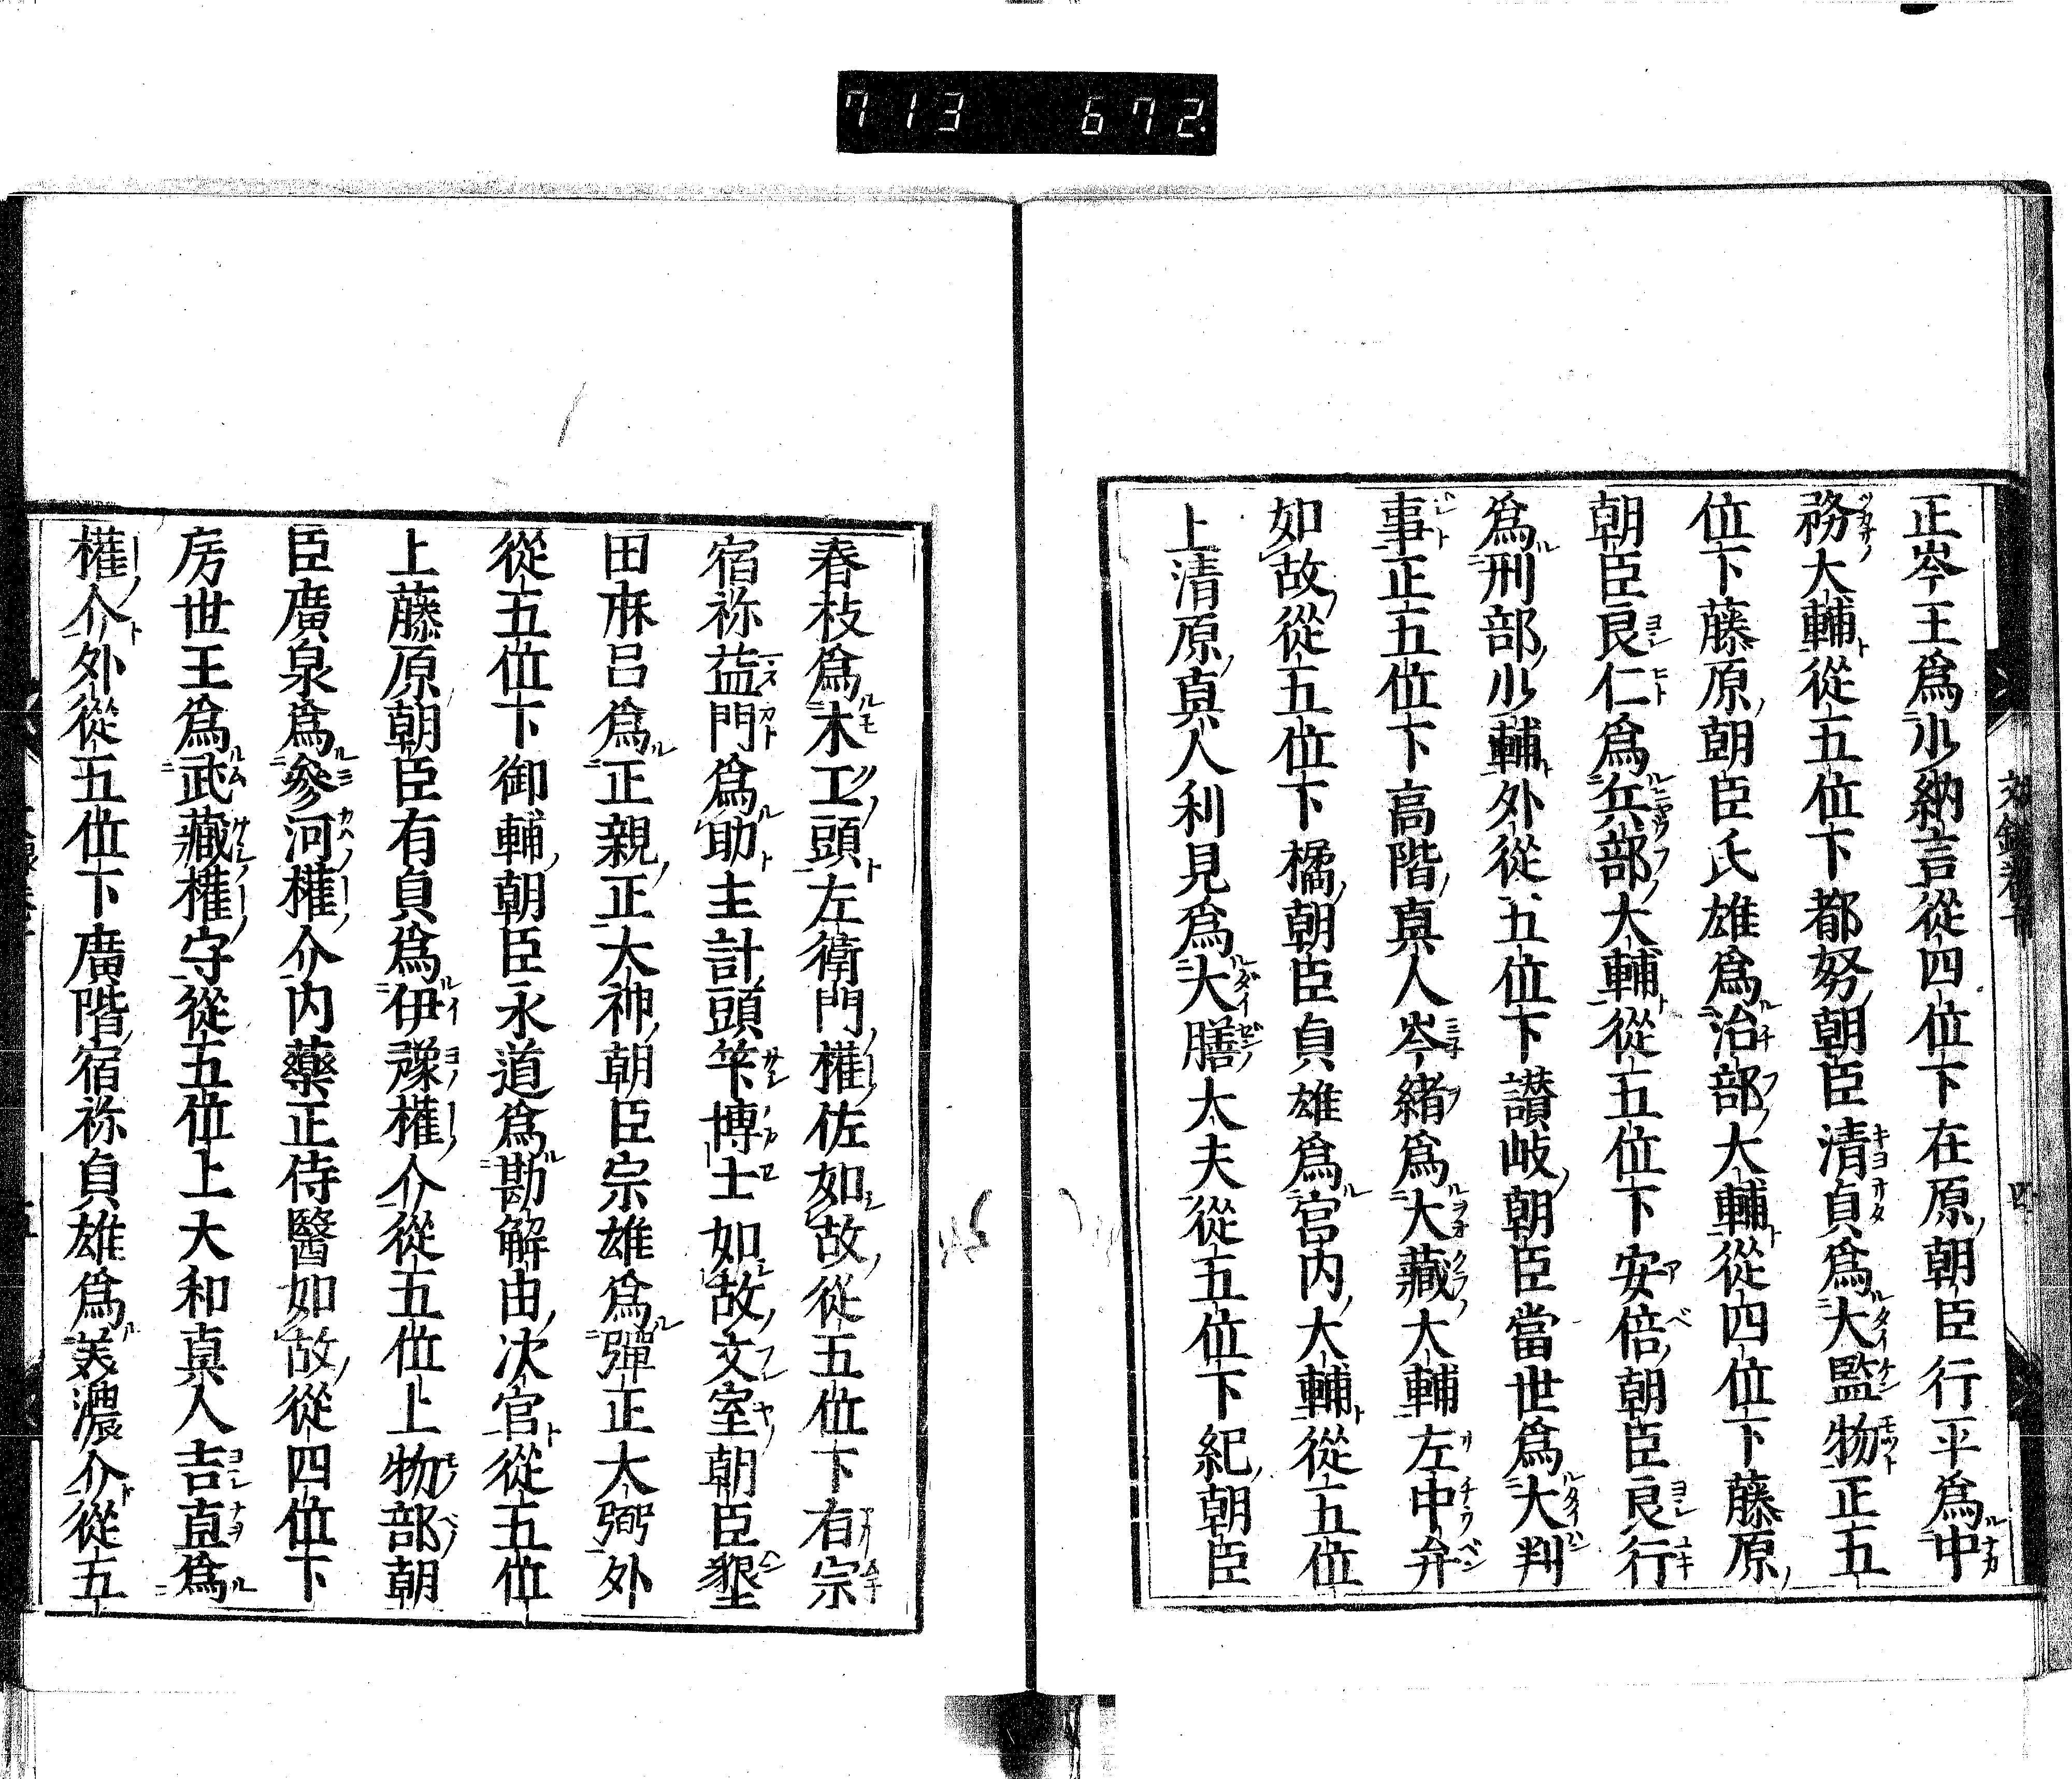 713 672.
正岑王爲少納言從四位下在原朝臣行平爲中
務大輔從五位下都努朝臣清貞爲大監物正五
位下藤原朝臣氏雄爲治部大輔從四位下藤原
朝臣良仁爲兵部大輔從五位下安倍朝臣良行
爲刑部少輔外從五位下讃岐朝臣當世爲大判
事正五位下高階真人岑緒爲大藏大輔左中弁
如故從五位下橘朝臣貞雄爲宮内大輔從五位
上清原真人利見爲大膳大夫從五位下紀朝臣
春枝爲木工頭左衛門權佐如故從五位下有宗
宿祢益門爲助主計頭笇博士如故文室朝臣墾
田麻呂爲正親正大神朝臣宗雄爲彈正大弼外
從五位下御輔朝臣永道爲勘解由次官從五位
上藤原朝臣有貞爲伊豫權介從五位上物部朝
臣廣泉爲參河權介内藥正侍醫如故從四位下
房世王爲武藏權守從五位上大和真人吉直爲
權介外從五位下廣階宿祢貞雄爲美濃介從五